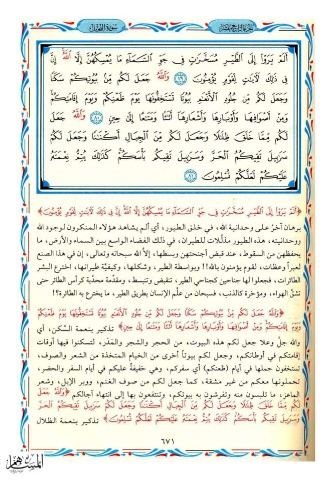 أَلَمْ يَرَوْا إِلَى الطَّيْرِ مُسَخَّرَاتٍ فِي جَوِّ السَّمَاءِ مَا يُمْسِكُهُنَّ إِلَّا اللَّهُ إِنَّ
فِي ذَلِكَ لَآيَاتٍ لِقَوْمٍ يُؤْمِنُونَ ۝ وَاللَّهُ جَعَلَ لَكُمْ مِنْ بُيُوتِكُمْ سَكَنًا
وَجَعَلَ لَكُمْ مِنْ جُلُودِ الْأَنْعَامِ بُيُوتًا تَسْتَخِفُّونَهَا يَوْمَ ظَعْنِكُمْ وَيَوْمَ إِقَامَتِكُمْ
وَمِنْ أَصْوَافِهَا وَأَوْبَارِهَا وَأَشْعَارِهَا أَثَاثًا وَمَتَاعًا إِلَى حِينٍ ۝ وَاللَّهُ جَعَلَ
لَكُمْ مِمَّا خَلَقَ ظِلَالًا وَجَعَلَ لَكُمْ مِنَ الْجِبَالِ أَكْنَانًا وَجَعَلَ لَكُمْ
سَرَابِيلَ تَقِيكُمُ الْحَرَّ وَسَرَابِيلَ تَقِيكُمْ بَأْسَكُمْ كَذَلِكَ يُتِمُّ نِعْمَتَهُ
عَلَيْكُمْ لَعَلَّكُمْ تُسْلِمُونَ
﴿أَلَمْ يَرَوْا إِلَى الطَّيْرِ مُسَخَّرَاتٍ فِي جَوِّ السَّمَاءِ مَا يُمْسِكُهُنَّ إِلَّا اللَّهُ إِنَّ فِي ذَلِكَ لَآيَاتٍ لِقَوْمٍ يُؤْمِنُونَ﴾
برهان آخر على وحدانية الله، في خلق الطيور، أي ألم يشاهد هؤلاء المنكرون لوجود الله
ووحدانيته، هذه الطيور مذلَّلات للطيران، في ذلك الفضاء الواسع بين السماء والأرض، ما
يحفظهن من السقوط، عند قبض أجنحتهن وبسطها، إلا الله سبحانه وتعالى، إن في هذا الصنع
لعبراً وعظات، لقوم يؤمنون بالله!! وبواسطة الطير، وشكلها، وكيفيَّة طيرانها، اخترع البشر
الطائرات، فجعلوا لها جناحين كجناحي الطير، تنقبض وتنبسط، ومقدّمة محدَّبة كرأس الطائر حتى
تشقَّ الهواء، ومؤخرة كالذنب، فسبحان من علَّم الإنسان بطريق الطير، ما يخترع به الطائرة؟!
﴿وَاللَّهُ جَعَلَ لَكُمْ مِنْ بُيُوتِكُمْ سَكَنًا وَجَعَلَ لَكُمْ مِنْ جُلُودِ الْأَنْعَامِ بُيُوتًا تَسْتَخِفُّونَهَا يَوْمَ ظَعْنِكُمْ
وَيَوْمَ إِقَامَتِكُمْ وَمِنْ أَصْوَافِهَا وَأَوْبَارِهَا وَأَشْعَارِهَا أَثَاثًا وَمَتَاعًا إِلَى حِينٍ﴾ تذكير بنعمة السُّكن، أي
والله جلَّ وعلا جعل لكم هذه البيوت، من الحجر والشجر والمَدَر، لتسكنوا فيها أوقات
إقامتكم في أوطانكم، وجعل لكم بيوتاً أخرى من الخيام المتخذة من الشعر والصوف،
تستخفون حملها في أيام (ظعنكم) أي سفركم، وهي خفيفةٌ عليكم في أيام السفر والحضر،
تحملونها معكم من غير مشقة، كما جعل لكم من صوف الغنم، ووبر الإبل، وشعر
الماعز، ما تلبسون منه وتفرشون به بيوتكم، وتنتفعون بها إلى انتهاء آجالكم ﴿وَاللَّهُ جَعَلَ
لَكُمْ مِمَّا خَلَقَ ظِلَالًا وَجَعَلَ لَكُمْ مِنَ الْجِبَالِ أَكْنَانًا وَجَعَلَ لَكُمْ سَرَابِيلَ تَقِيكُمُ الْحَرَّ
وَسَرَابِيلَ تَقِيكُمْ بَأْسَكُمْ كَذَلِكَ يُتِمُّ نِعْمَتَهُ عَلَيْكُمْ لَعَلَّكُمْ تُسْلِمُونَ﴾ تذكير بنعمة الظلال
٦٧١